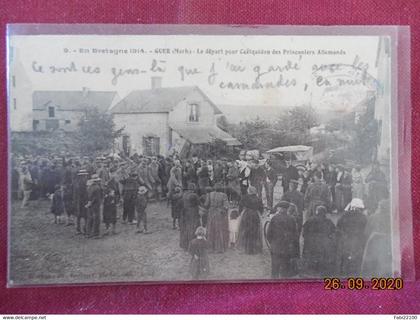 9. - En Bretagne 1914. - GUER (Morb.) - Le départ pour Coëtquidan des Prisonniers Allemands
Ce sont ces gens-là que j'ai gardé avec les
camarades, en
26.09.2020